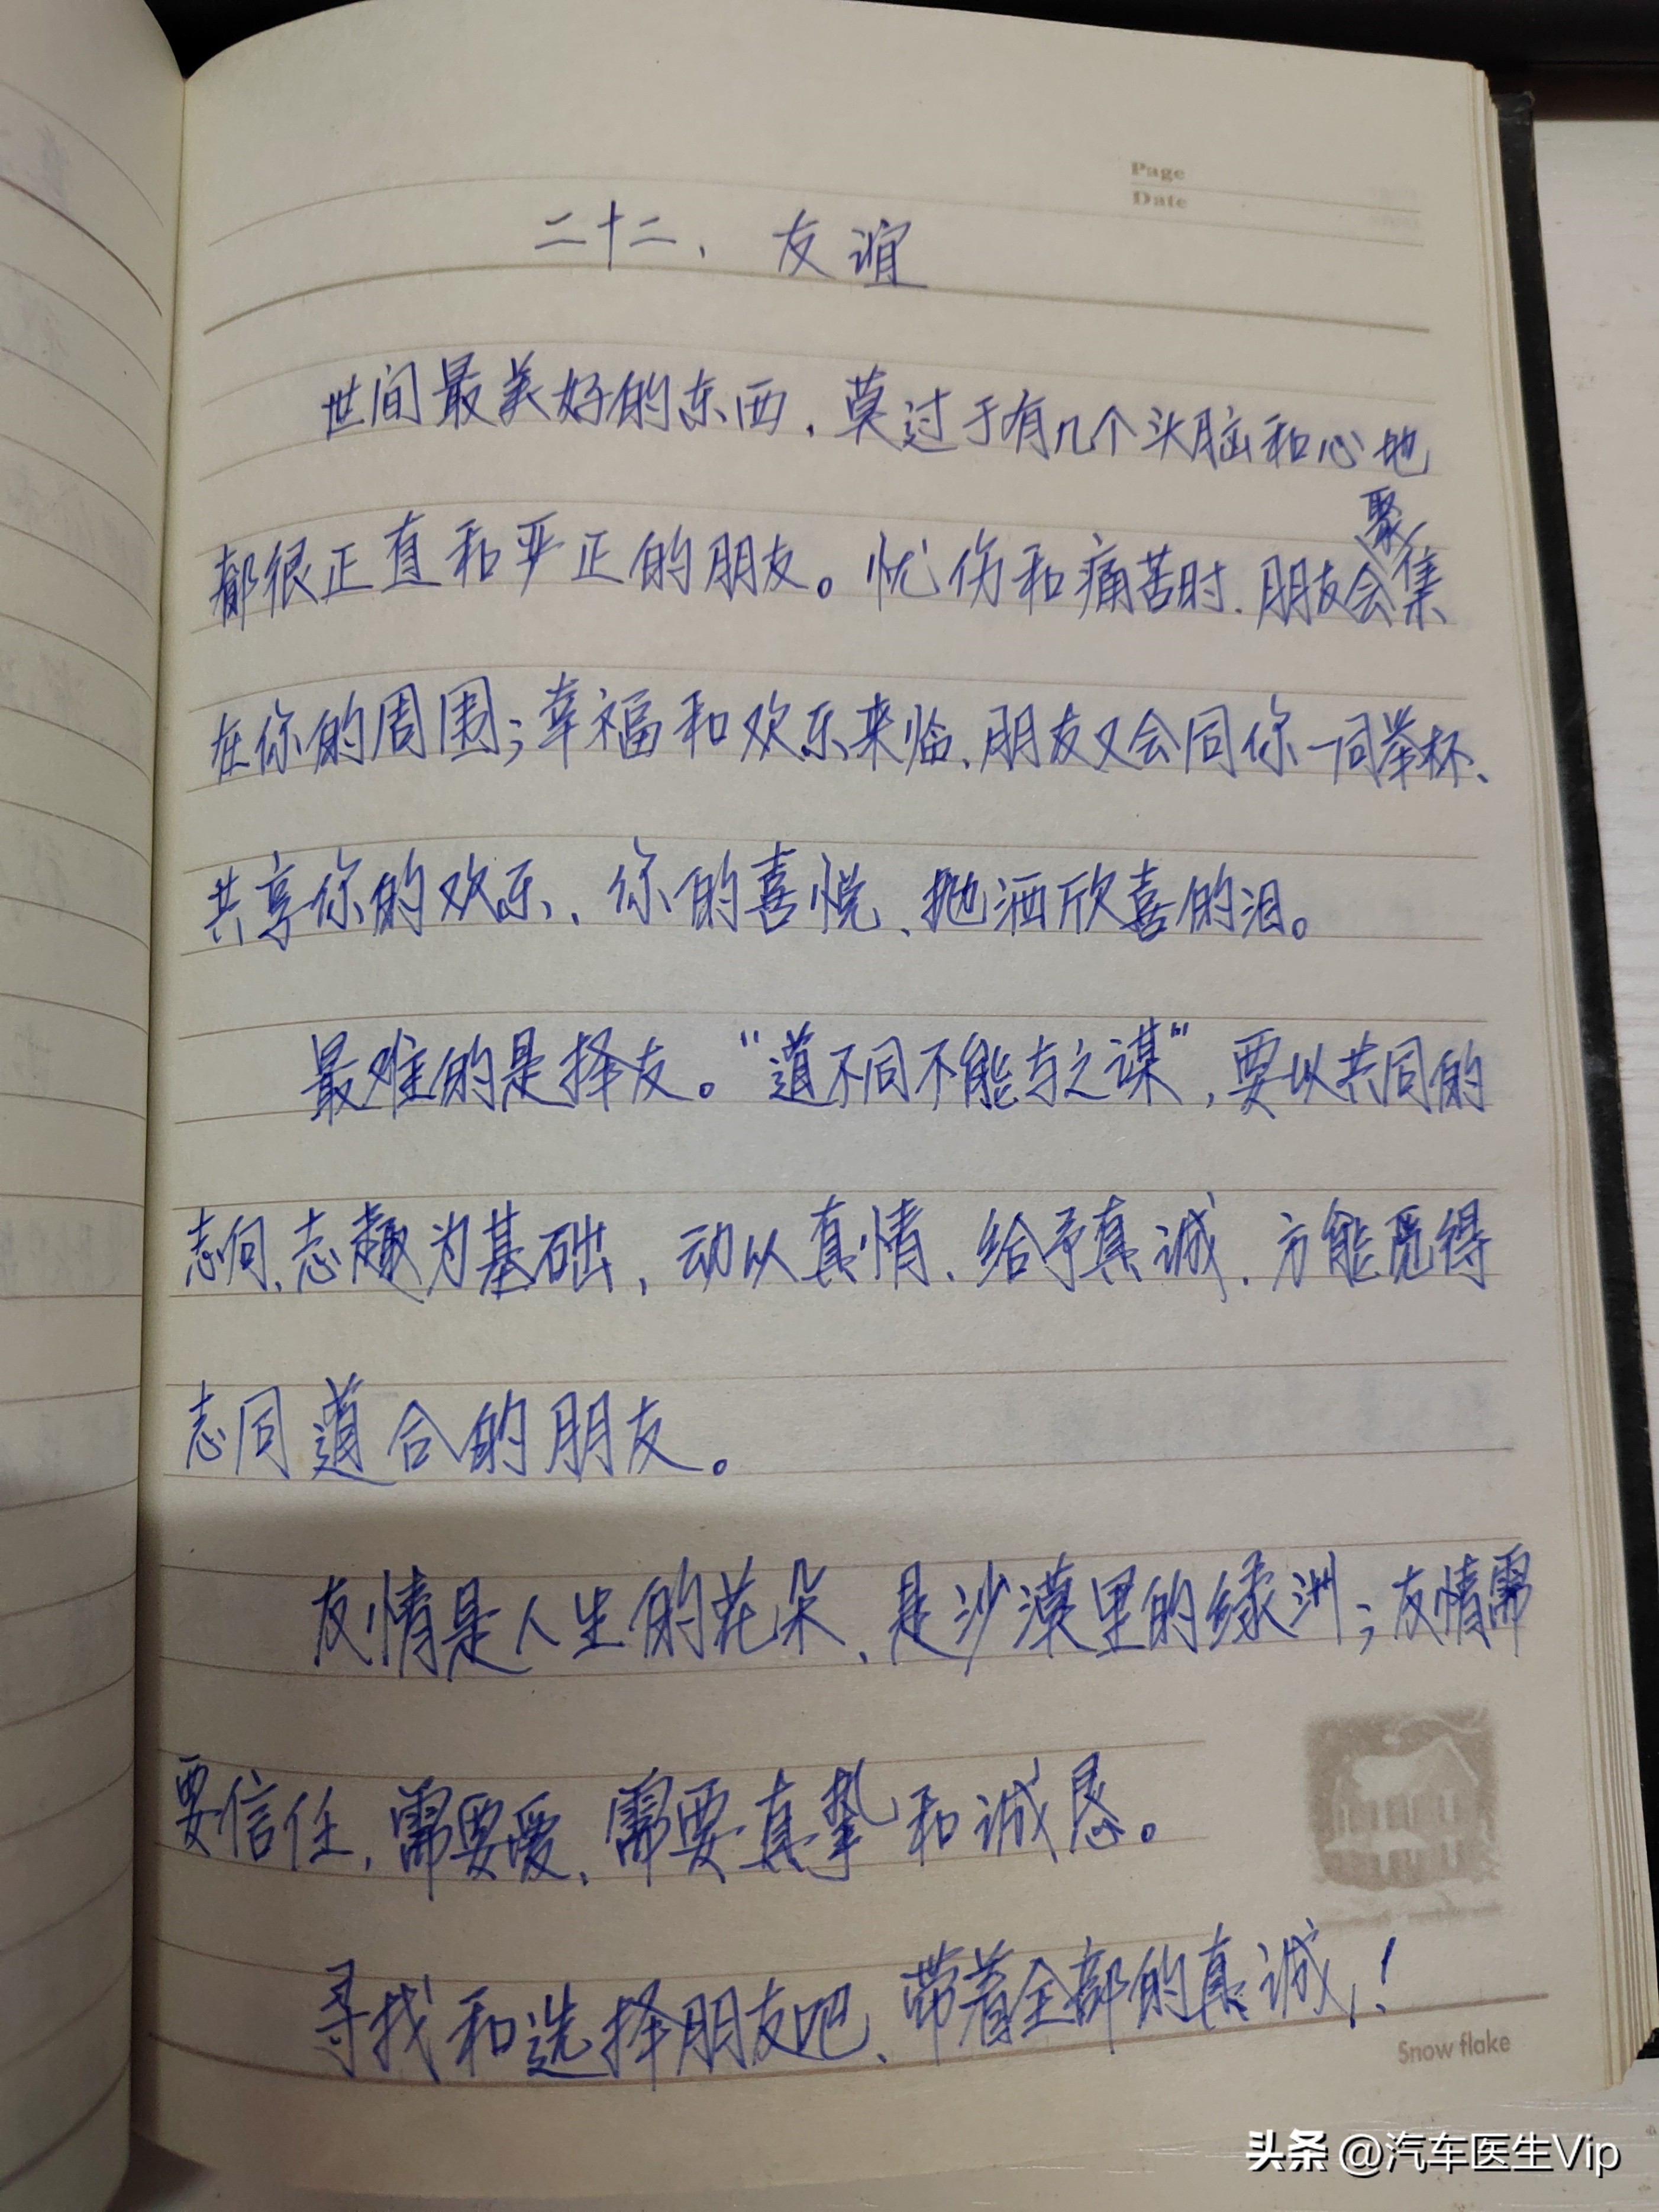 Page
Date
二十二、友谊
世间最美好的东西，莫过于有几个头脑和心地
都很正直和严正的朋友。忧伤和痛苦时，朋友会聚集
在你的周围；幸福和欢乐来临，朋友又会同你一同举杯、
共享你的欢乐、你的喜悦、抛洒欣喜的泪。
最难的是择友。“道不同不能与之谋”，要以共同的
志向、志趣为基础，动以真情、给予真诚，方能觅得
志同道合的朋友。
友情是人生的花朵、是沙漠里的绿洲；友情需
要信任，需要爱，需要真挚和诚恳。
寻找和选择朋友吧、带着全部的真诚！
Snow flake
头条 @汽车医生Vip